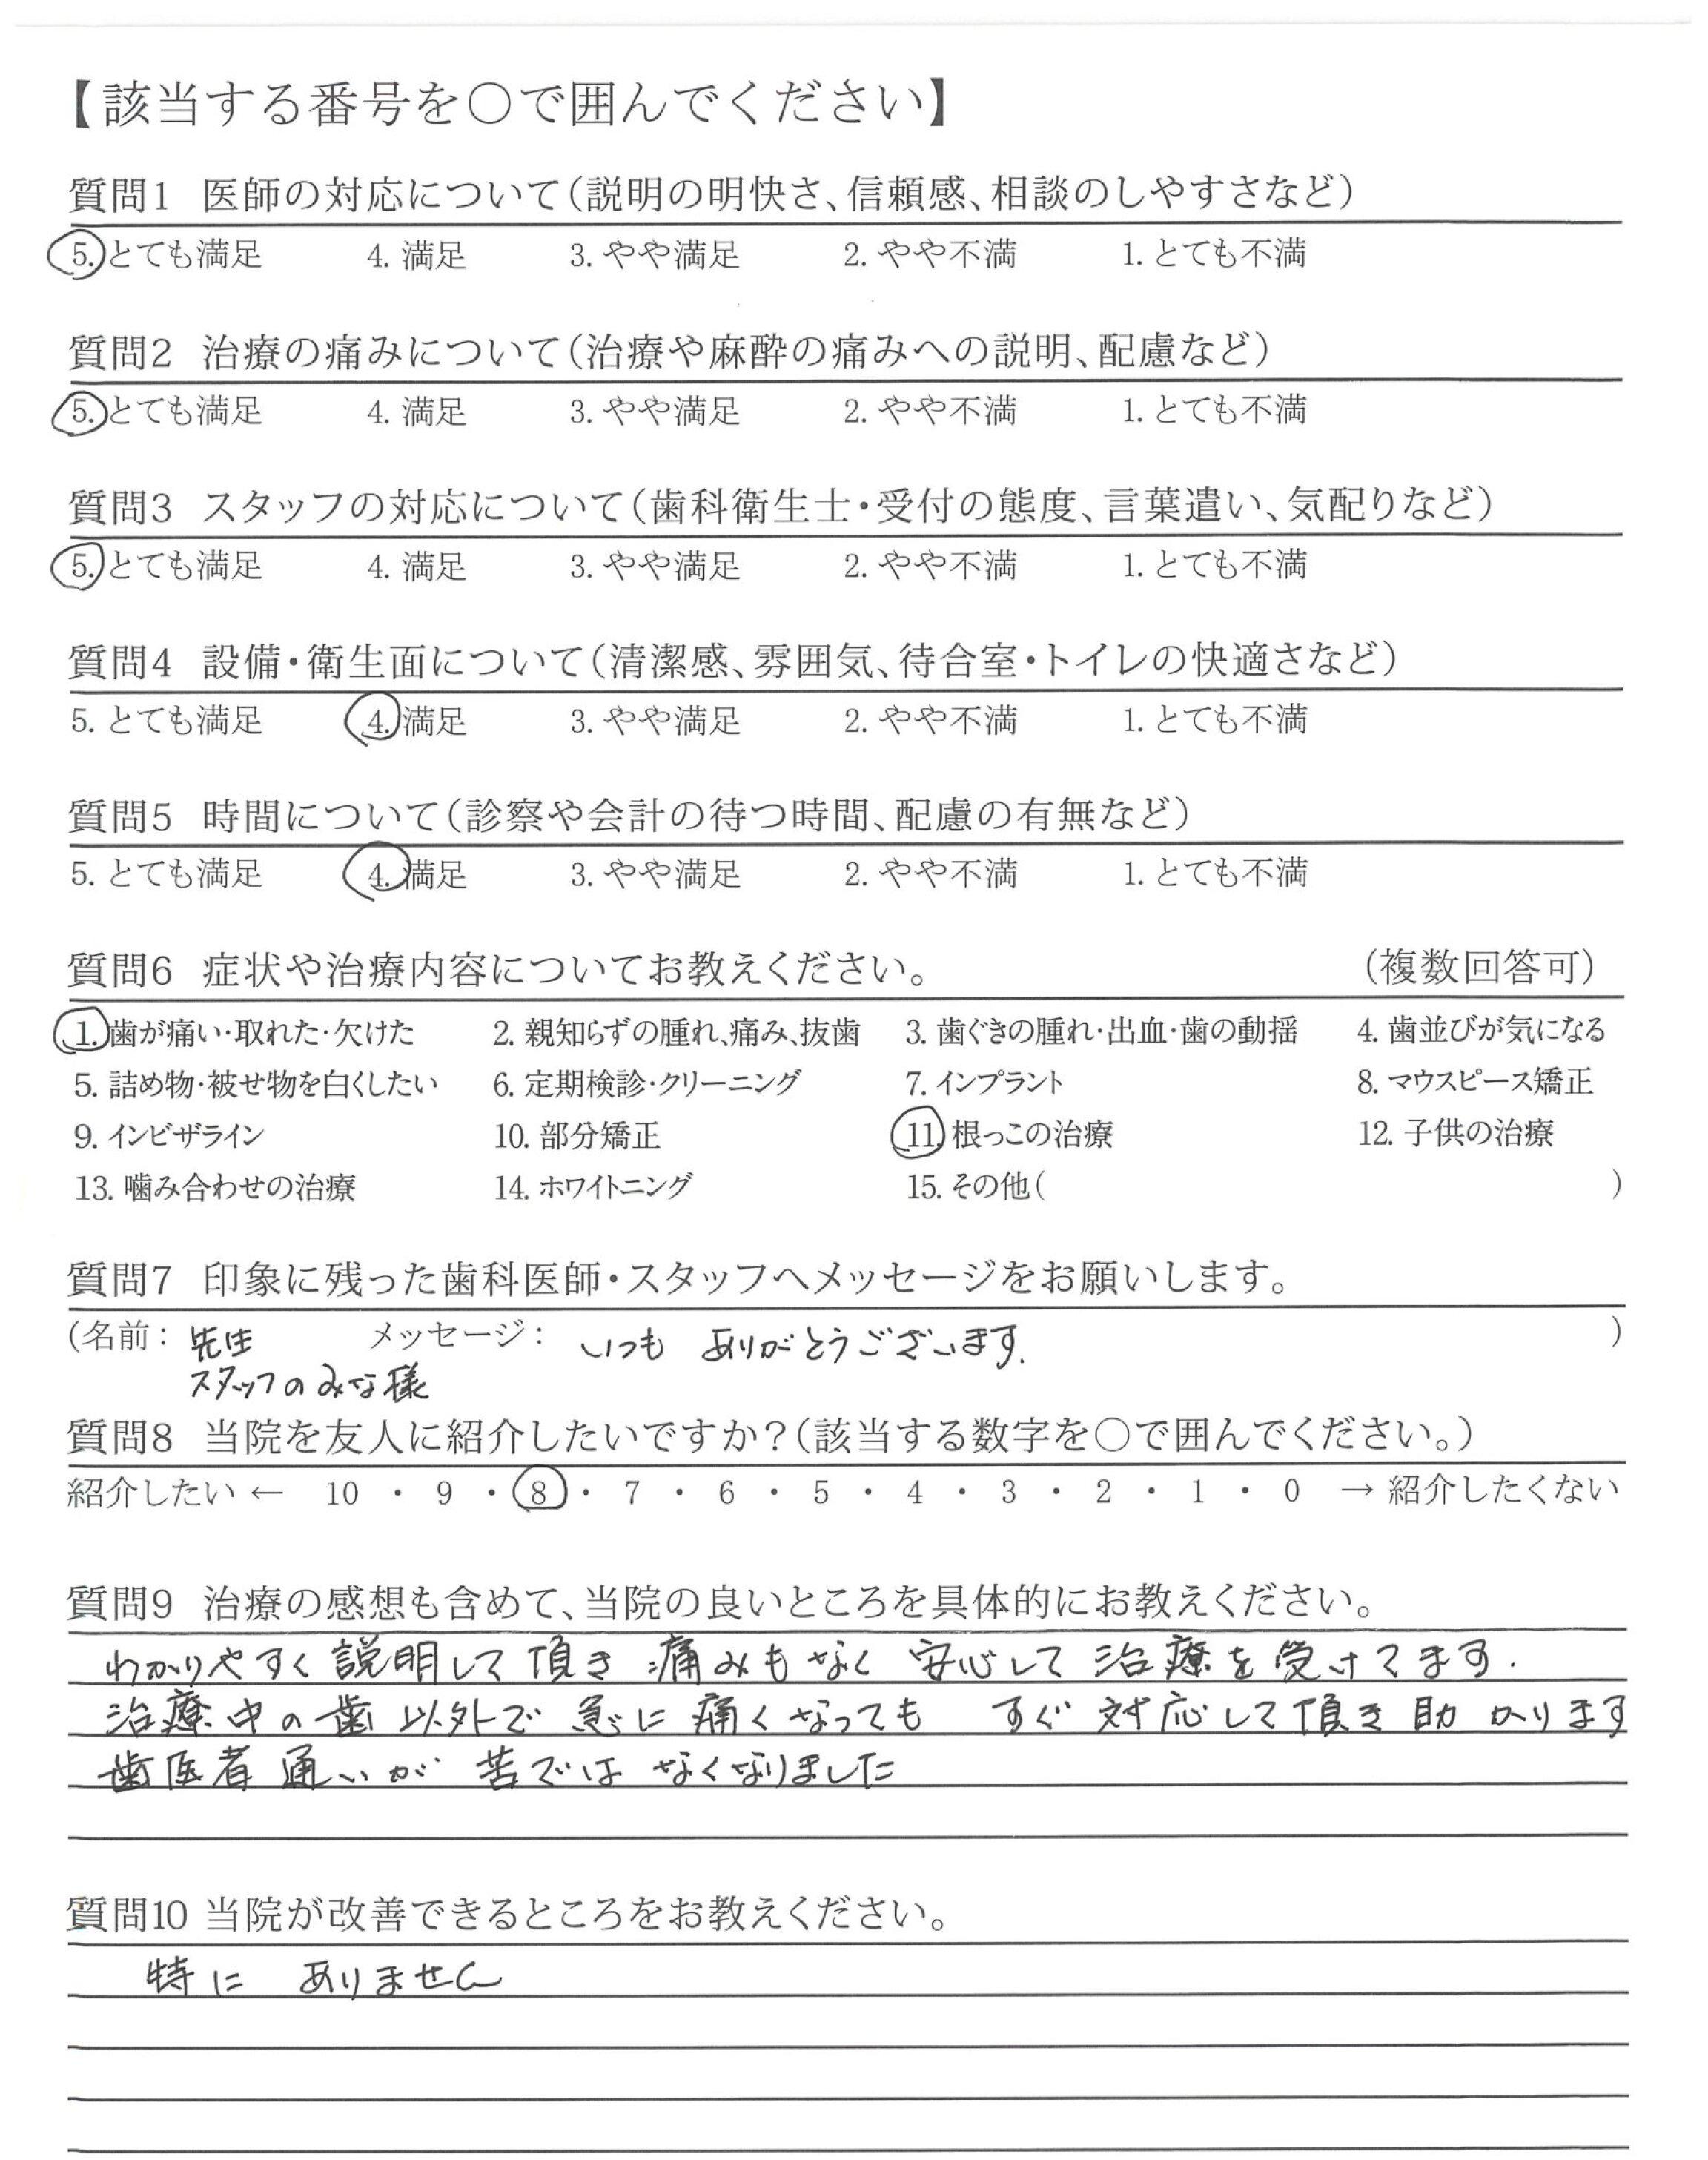 【該当する番号を〇で囲んでください】
質問1 医師の対応について（説明の明快さ、信頼感、相談のしやすさなど）
5. とても満足 4. 満足 3. やや満足 2. やや不満 1. とても不満
質問2 治療の痛みについて（治療や麻酔の痛みへの説明、配慮など）
5. とても満足 4. 満足 3. やや満足 2. やや不満 1. とても不満
質問3 スタッフの対応について（歯科衛生士・受付の態度、言葉遣い、気配りなど）
5. とても満足 4. 満足 3. やや満足 2. やや不満 1. とても不満
質問4 設備・衛生面について（清潔感、雰囲気、待合室・トイレの快適さなど）
5. とても満足 4. 満足 3. やや満足 2. やや不満 1. とても不満
質問5 時間について（診察や会計の待つ時間、配慮の有無など）
5. とても満足 4. 満足 3. やや満足 2. やや不満 1. とても不満
質問6 症状や治療内容についてお教えください。 （複数回答可）
1. 歯が痛い・取れた・欠けた 2. 親知らずの腫れ、痛み、抜歯 3. 歯ぐきの腫れ・出血・歯の動揺 4. 歯並びが気になる
5. 詰め物・被せ物を白くしたい 6. 定期検診・クリーニング 7. インプラント 8. マウスピース矯正
9. インビザライン 10. 部分矯正 11. 根っこの治療 12. 子供の治療
13. 噛み合わせの治療 14. ホワイトニング 15. その他（ ）
質問7 印象に残った歯科医師・スタッフへメッセージをお願いします。
（名前： 先生 メッセージ： いつも ありがとうございます. ）
スタッフのみな様
質問8 当院を友人に紹介したいですか？（該当する数字を〇で囲んでください。）
紹介したい ← 10 ・ 9 ・ 8 ・ 7 ・ 6 ・ 5 ・ 4 ・ 3 ・ 2 ・ 1 ・ 0 → 紹介したくない
質問9 治療の感想も含めて、当院の良いところを具体的にお教えください。
わかりやすく 説明して 頂き 痛みもなく 安心して 治療を受けてます.
治療中の歯 以外で 急に 痛くなっても すぐ 対応して頂き 助かります
歯医者通いが 苦では なくなりました
質問10 当院が改善できるところをお教えください。
特に ありません